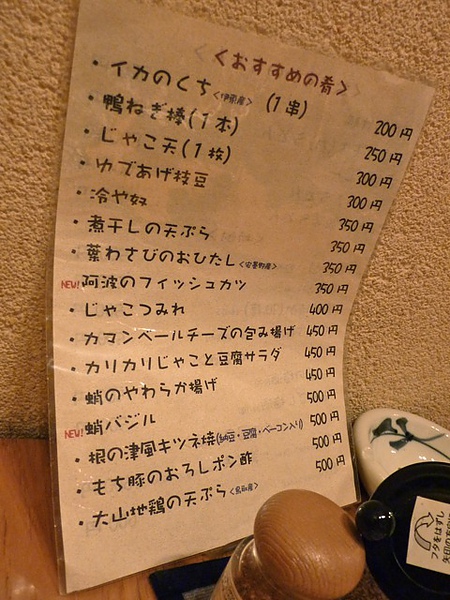 <おすすめの肴>
・イカのくち (1串) 200円
・鴨ねぎ棒(1本) 250円
・じゃこ天(1枚) 300円
・ゆであげ枝豆 300円
・冷や奴 350円
・煮干しの天ぷら 350円
・葉わさびのおひたし<安曇野産> 350円
NEW!阿波のフィッシュカツ 350円
・じゃこつみれ 400円
・カマンベールチーズの包み揚げ 450円
・カリカリじゃこと豆腐サラダ 450円
・蛸のやわらか揚げ 450円
NEW!蛸バジル 500円
・根の津風キツネ焼(納豆・豆腐・ベーコン入り) 500円
・もち豚のおろしポン酢 500円
・大山地鶏の天ぷら<鳥取産> 500円
フタをはずし